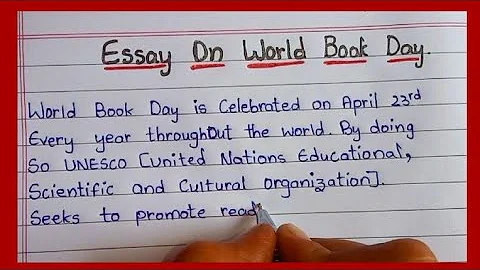 Essay On World Book Day.
World Book Day is Celebrated on April 23rd
Every year throughout the world. By doing
So UNESCO [United Nations Educational,
Scientific and Cultural organization].
Seeks to promote read